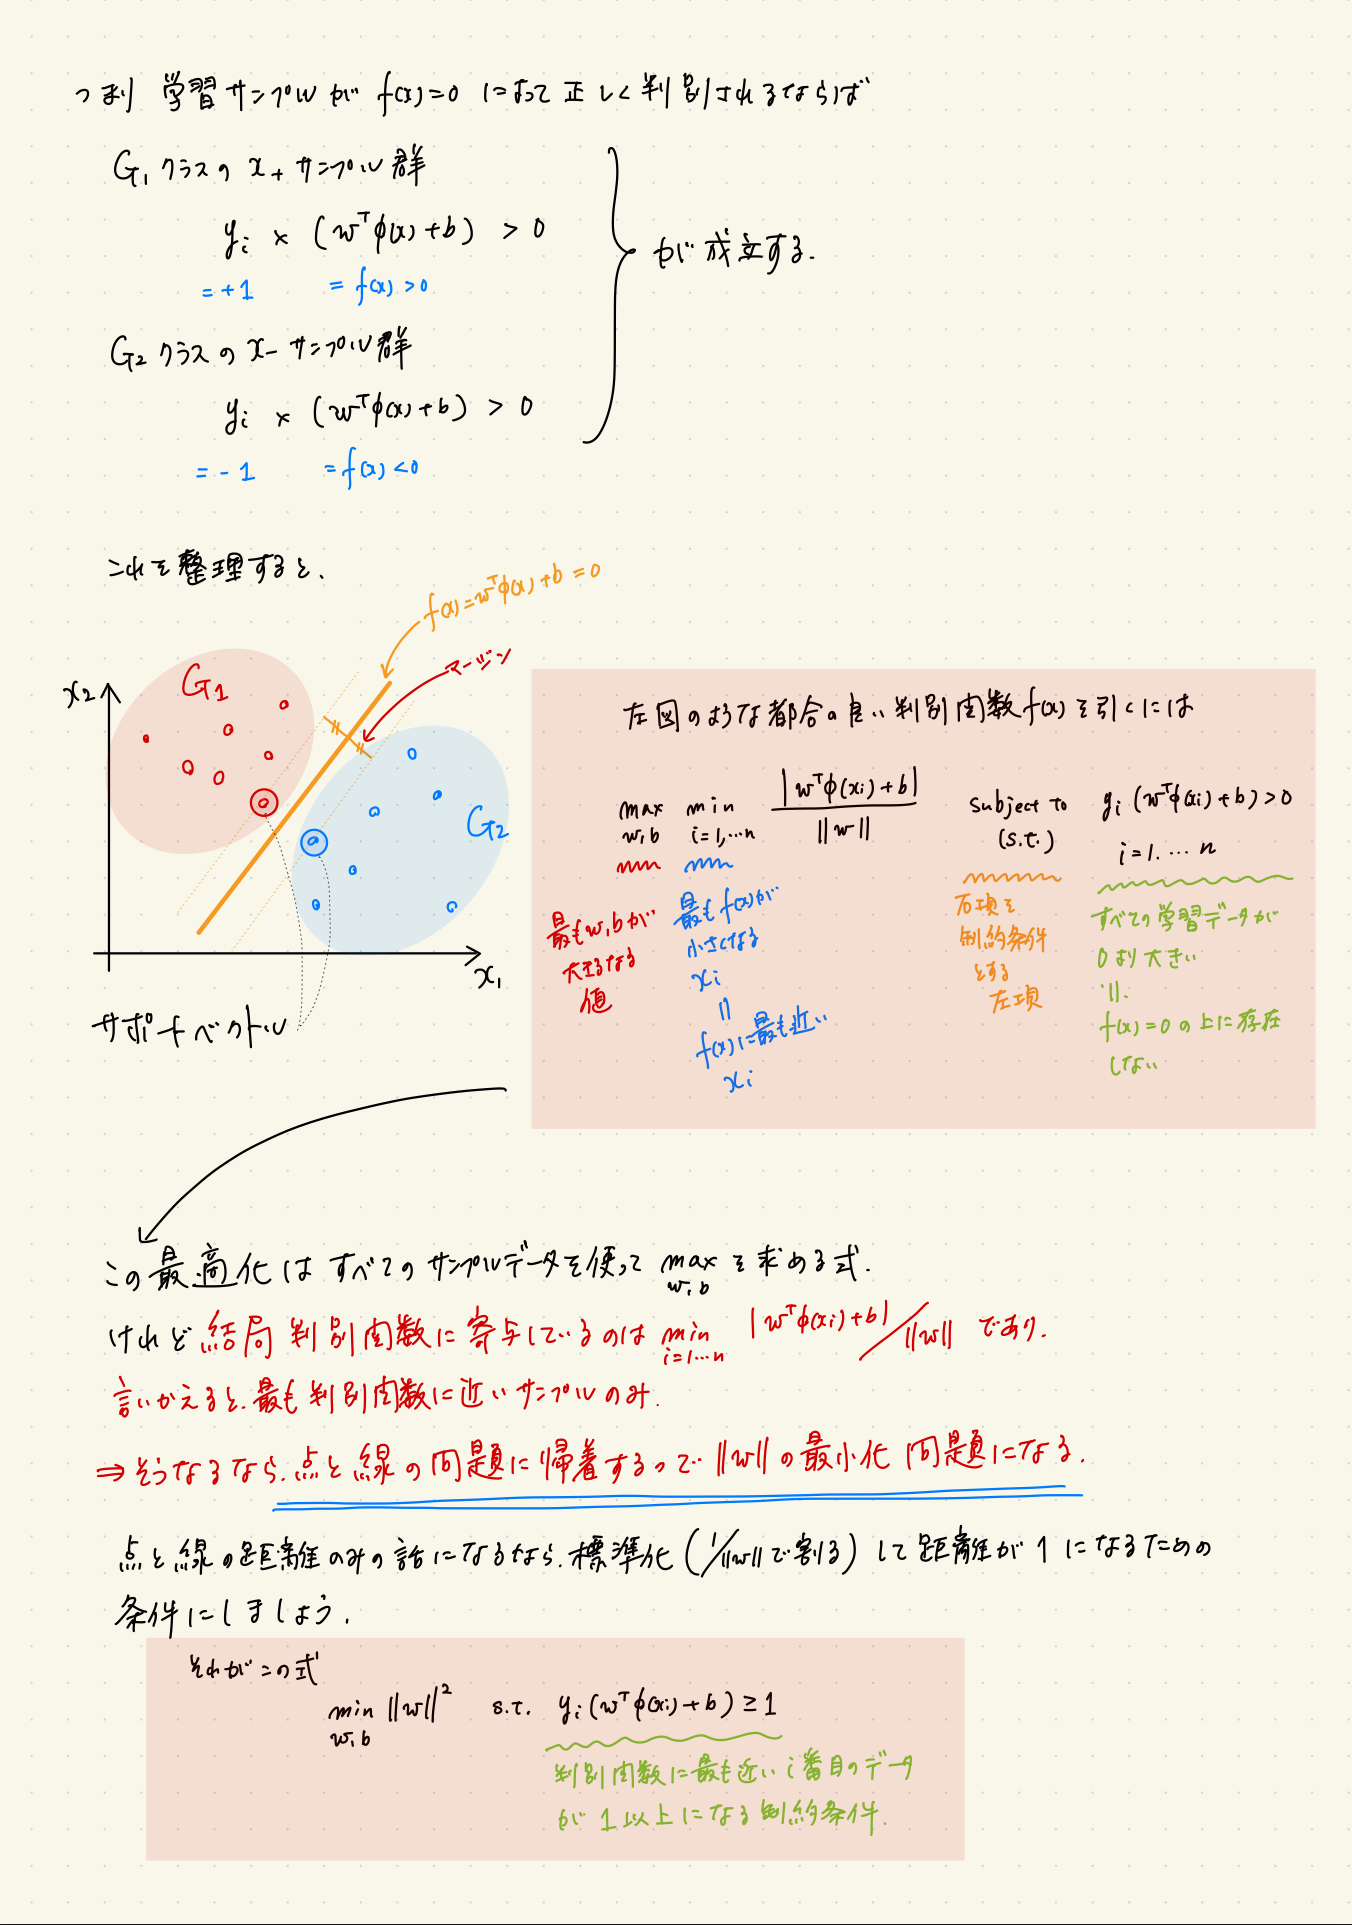 つまり 学習サンプルが f(x)=0 によって正しく判別されるならば
G₁クラスの x₊サンプル群
yᵢ × (wᵀφ(x)+b) > 0
=+1 =f(x)>0
が成立する.
G₂クラスの x₋サンプル群
yᵢ × (wᵀφ(x)+b) > 0
=-1 =f(x)<0
これを整理すると、
f(x)=wᵀφ(x)+b=0
マージン
x₂
G₁
G₂
x₁
サポートベクトル
左図のような都合の良い判別関数f(x)を引くには
max w,b min i=1,…n |wᵀφ(xᵢ)+b| / ||w|| subject to (s.t.) yᵢ(wᵀφ(xᵢ)+b)>0
i=1.…n
最もw,bが
大きくなる
値
最もf(x)が
小さくなる
xᵢ
||
f(x)に最も近い
xᵢ
右項を
制約条件
とする
左項
すべての学習データが
0より大きい
||.
f(x)=0の上に存在
しない
この最適化はすべてのサンプルデータを使って max w,b を求める式.
けれど結局判別関数に寄与しているのは min i=1…n |wᵀφ(xᵢ)+b|/||w|| であり.
言いかえると、最も判別関数に近いサンプルのみ.
⇒そうなるなら、点と線の問題に帰着するって||w||の最小化問題になる.
点と線の距離のみの話になるなら、標準化(1/||w||で割る)して距離が1になるための
条件にしましょう.
それがこの式
min w,b ||w||² s.t. yᵢ(wᵀφ(xᵢ)+b)≥1
判別関数に最も近いi番目のデータ
が1以上になる制約条件.